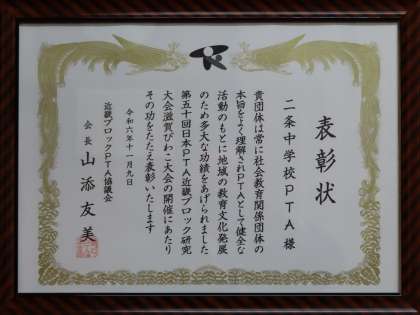 表彰状
二条中学校PTA様
貴団体は常に社会教育関係団体の
本旨をよく理解されPTAとして健全な
活動のもとに地域の教育文化発展
のため多大な功績をあげられました
第五十回日本PTA近畿ブロック研究
大会滋賀びわこ大会の開催にあたり
その功をたたえ表彰いたします
令和六年十一月九日
近畿ブロックPTA協議会
会長 山添友美